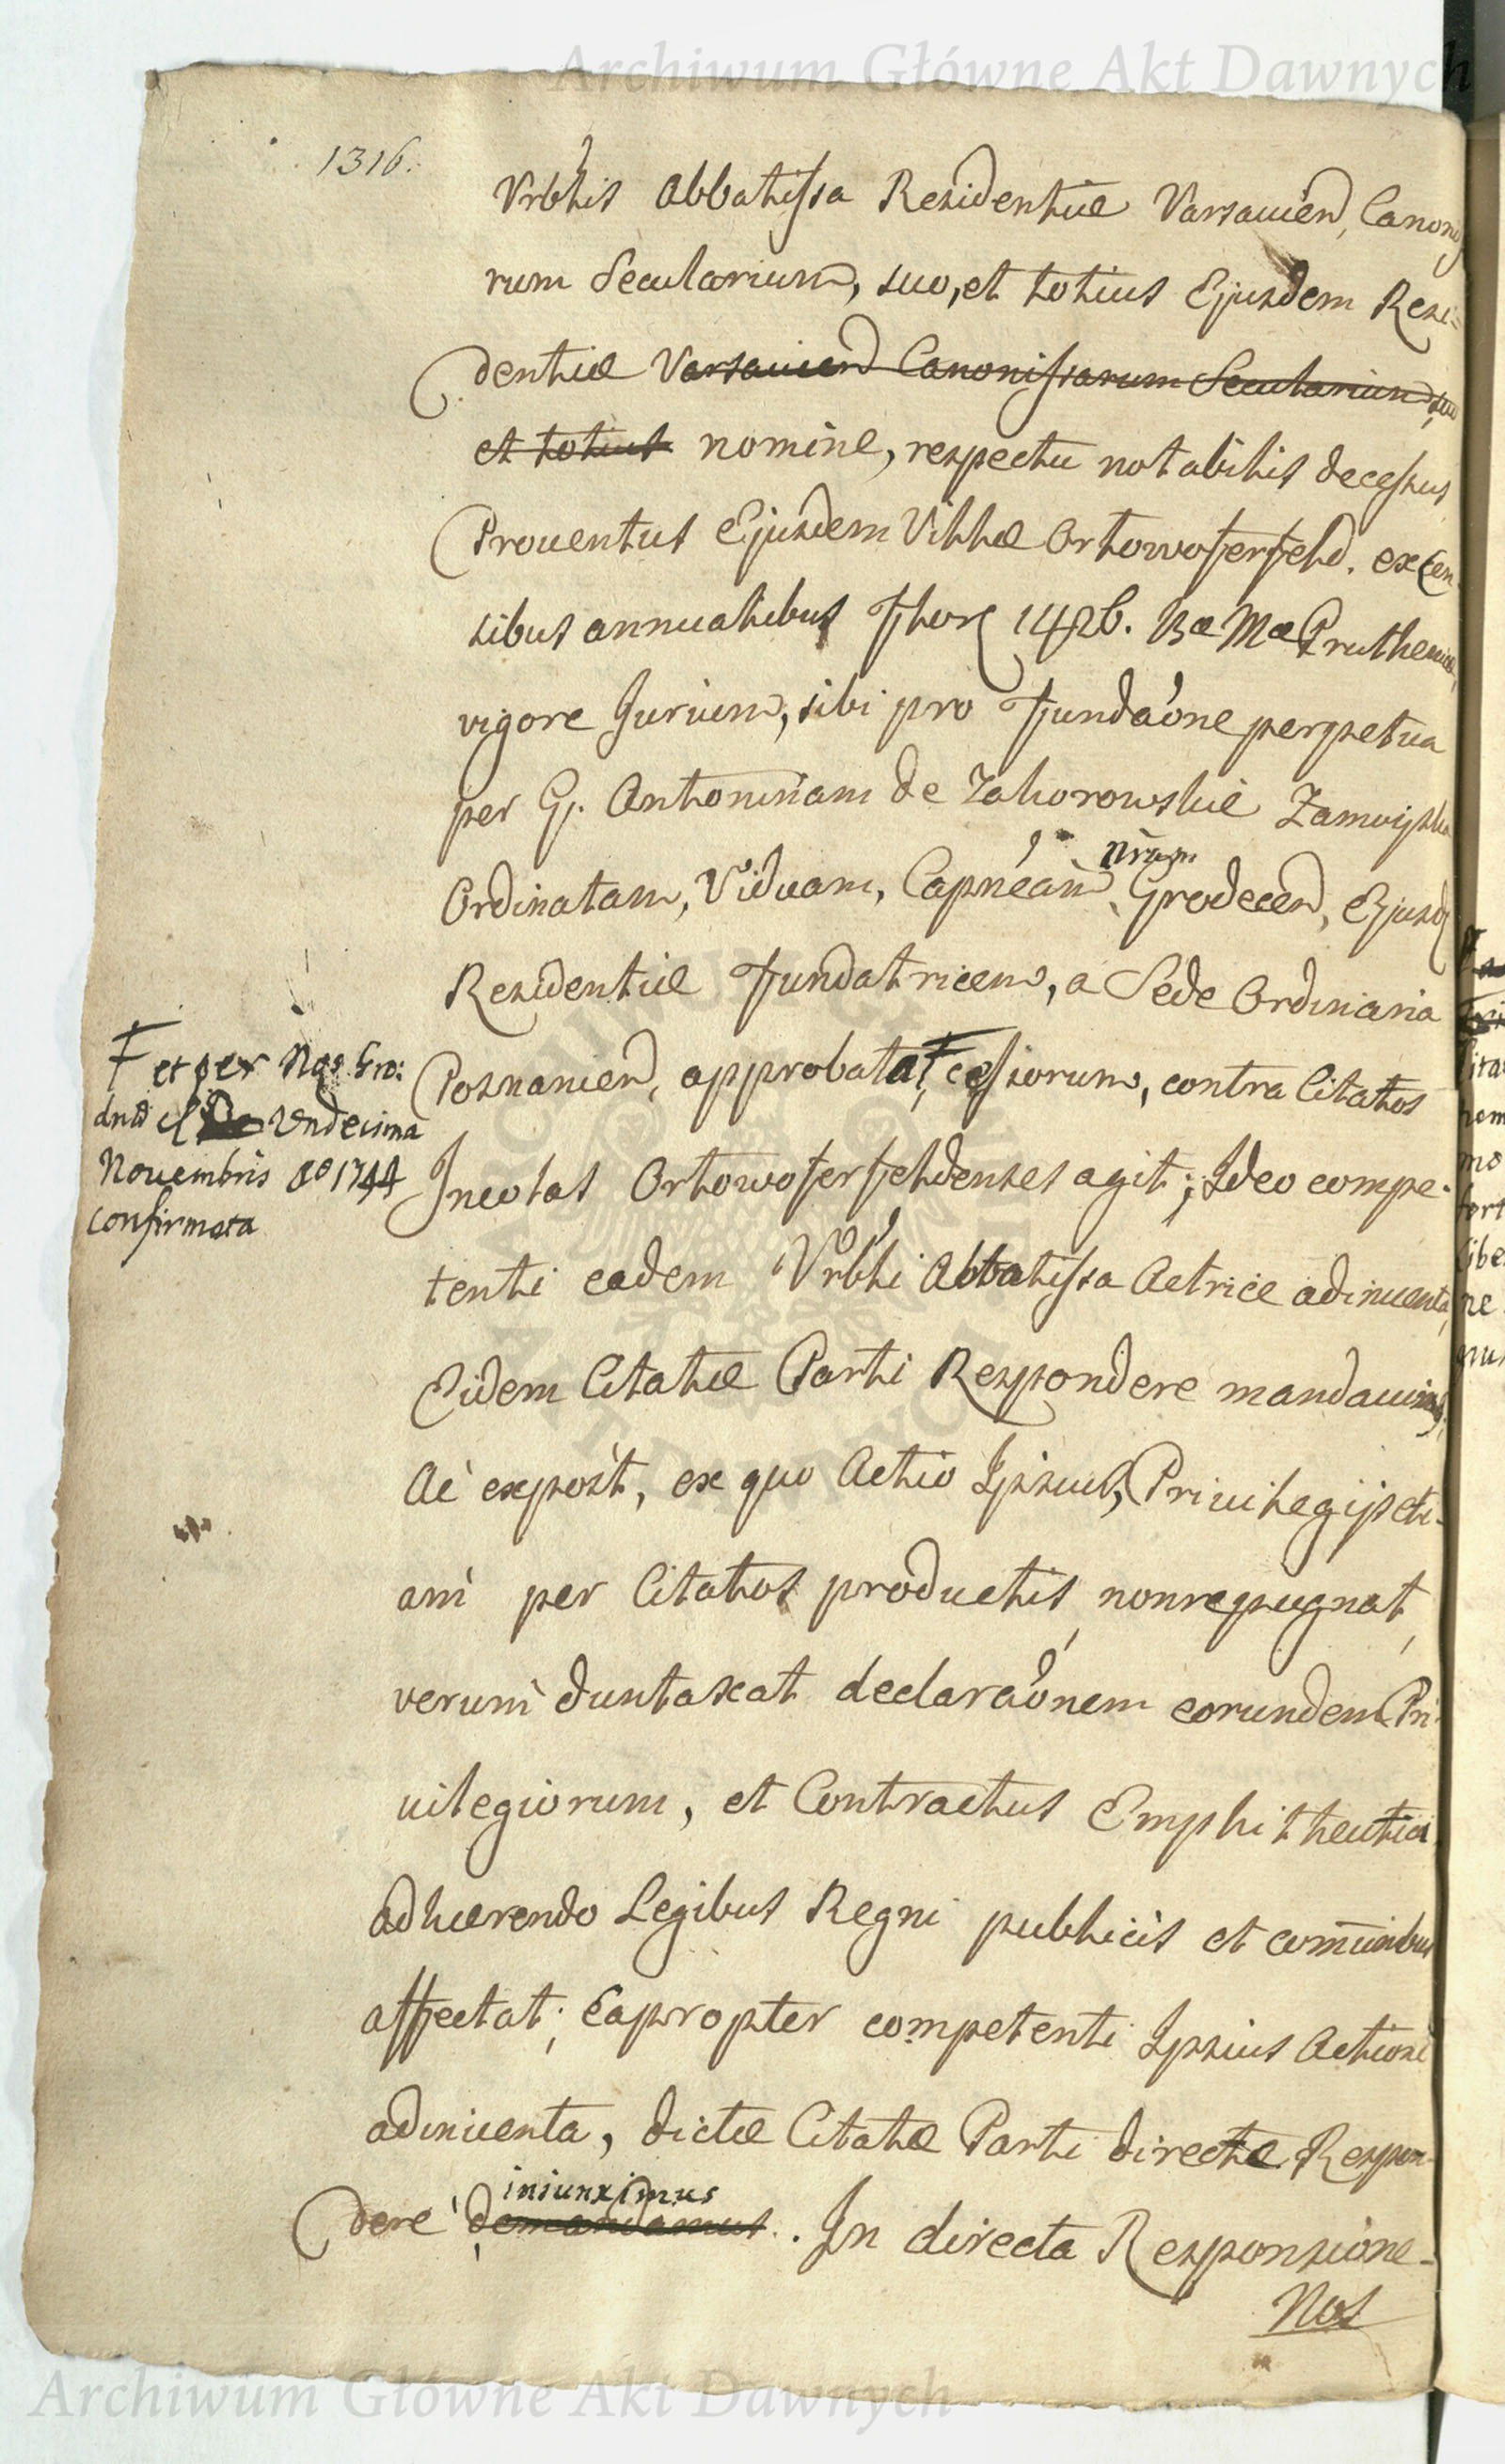 Archiwum Główne Akt Dawnych
1316.
Vrblis Abbatissa Residentiæ Varsavien, Canonis
rum Secularium, suo, et totius Ejusdem Resi=
dentiæ Varsavien Canonissarum Secularium, suo
et totius nomine, respectu notabilis decessus
Proventus Ejusdem Villæ Orlowoferfeld. ex Cen
sibus annualibus Flor 1426. Bæ Mæ Pruthenicæ,
vigore Jurium, sibi pro Fundaóne perpetua
per G. Antoninam de Zahorowskie Zamoyska
Ordinatam, Viduam, Capnéam nrãm Grodecen, Ejusd
Residentiæ Fundatricem, a Sede Ordinaria
Posnanien, approbata, F cessiorum, contra Citatos
F et per Nos Gro:
dnæ Die Undecima
Novembris ao 1744
confirmata
Incolas Orlowoferfeldenses agit; Ideo compe-
tenti eadem Vrbli Abbatissa Actrice adinventa,
Eidem Citatæ Parti Respondere mandavimus,
Ac expost, ex quo Actio Ipsius, Privilegijs eti-
am per Citatos productis, non repugnat,
verum duntaxat declaraónem eorundem Pri-
vilegiorum, et Contractus Emphitheutici
adhærendo Legibus Regni publicis et com̄unibus
affectat; Eapropter competenti Ipsius Actione
adinventa, dictæ Citatæ Parti directe Respon-
dere demandamus iniunximus. In directa Responsione-
Nos
Archiwum Główne Akt Dawnych